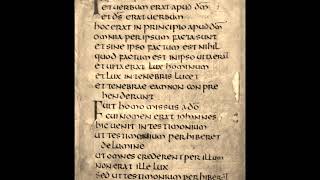 et verbum erat apud dm
et ds erat verbum
hoc erat in principio apud dm
omnia per ipsum facta sunt
et sine ipso factum est nihil
quod factum est in ipso vita erat
et vita erat lux hominum
et lux in tenebris lucet
et tenebrae eam non con pre
henderunt
Fuit homo missus a do
cui nomen erat iohannes
hic venit in testimonium
ut testimonium perhiberet
de lumine
ut omnes crederent per illum
non erat ille lux
sed ut testimonium perhiberet